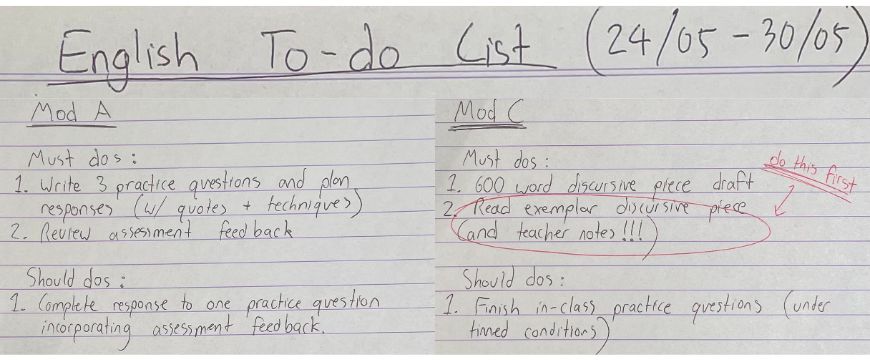 English To-do List (24/05 - 30/05)
Mod A
Must dos:
1. Write 3 practice questions and plan
responses (w/ quotes + techniques)
2. Review assessment feedback
Should dos:
1. Complete response to one practice question
incorporating assessment feedback.
Mod C
Must dos:
do this first
1. 600 word discursive piece draft
2. Read exemplar discursive piece
(and teacher notes!!!)
Should dos:
1. Finish in-class practice questions (under
timed conditions)